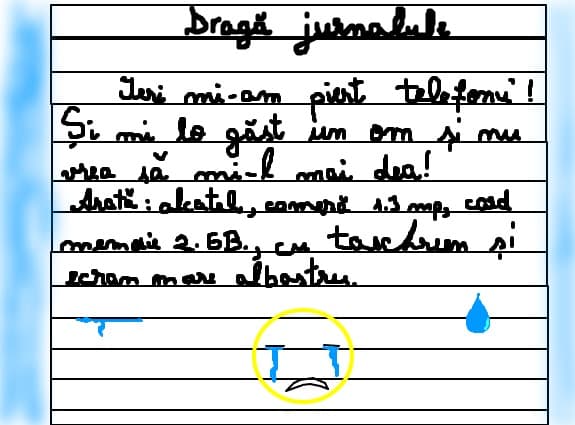 Dragă jurnalule
Ieri mi-am piert telefonu'!
Și mi lo găst un om și nu
vrea să mi-l mai dea!
Arată: alcatel, cameră 1.3 mp, card
memorie 2.GB., cu taschreen și
ecran mare albastru.